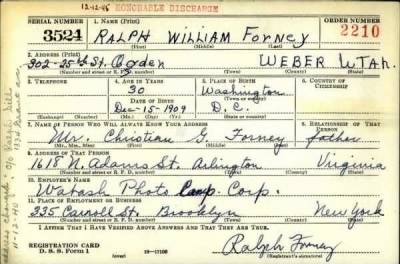 12-12-45 HONORABLE DISCHARGE
SERIAL NUMBER 1. NAME (Print) ORDER NUMBER
3524 RALPH WILLIAM FORNEY 2210
(First) (Middle) (Last)
2. ADDRESS (Print)
302-25th St. Ogden WEBER UTAH.
(Number and street or R. F. D. number) (Town) (County) (State)
3. TELEPHONE 4. AGE IN YEARS 5. PLACE OF BIRTH 6. COUNTRY OF CITIZENSHIP
30 Washington
DATE OF BIRTH (Town or county)
Dec-15-1909 D.C.
(Exchange) (Number) (Mo.) (Day) (Yr.) (State or country)
7. NAME OF PERSON WHO WILL ALWAYS KNOW YOUR ADDRESS 8. RELATIONSHIP OF THAT PERSON
Mr. Christian G. Forney father
(Mr., Mrs., Miss) (First) (Middle) (Last)
9. ADDRESS OF THAT PERSON
1618 N. Adams St. Arlington Virginia
(Number and street or R. F. D. number) (Town) (County) (State)
10. EMPLOYER'S NAME
Wabash Photo Corp.
11. PLACE OF EMPLOYMENT OR BUSINESS
335 Carroll St. Brooklyn New York
(Number and street or R. F. D. number) (Town) (County) (State)
I AFFIRM THAT I HAVE VERIFIED ABOVE ANSWERS AND THAT THEY ARE TRUE.
REGISTRATION CARD
D. S. S. Form 1 Ralph Forney
(Registrant's signature)